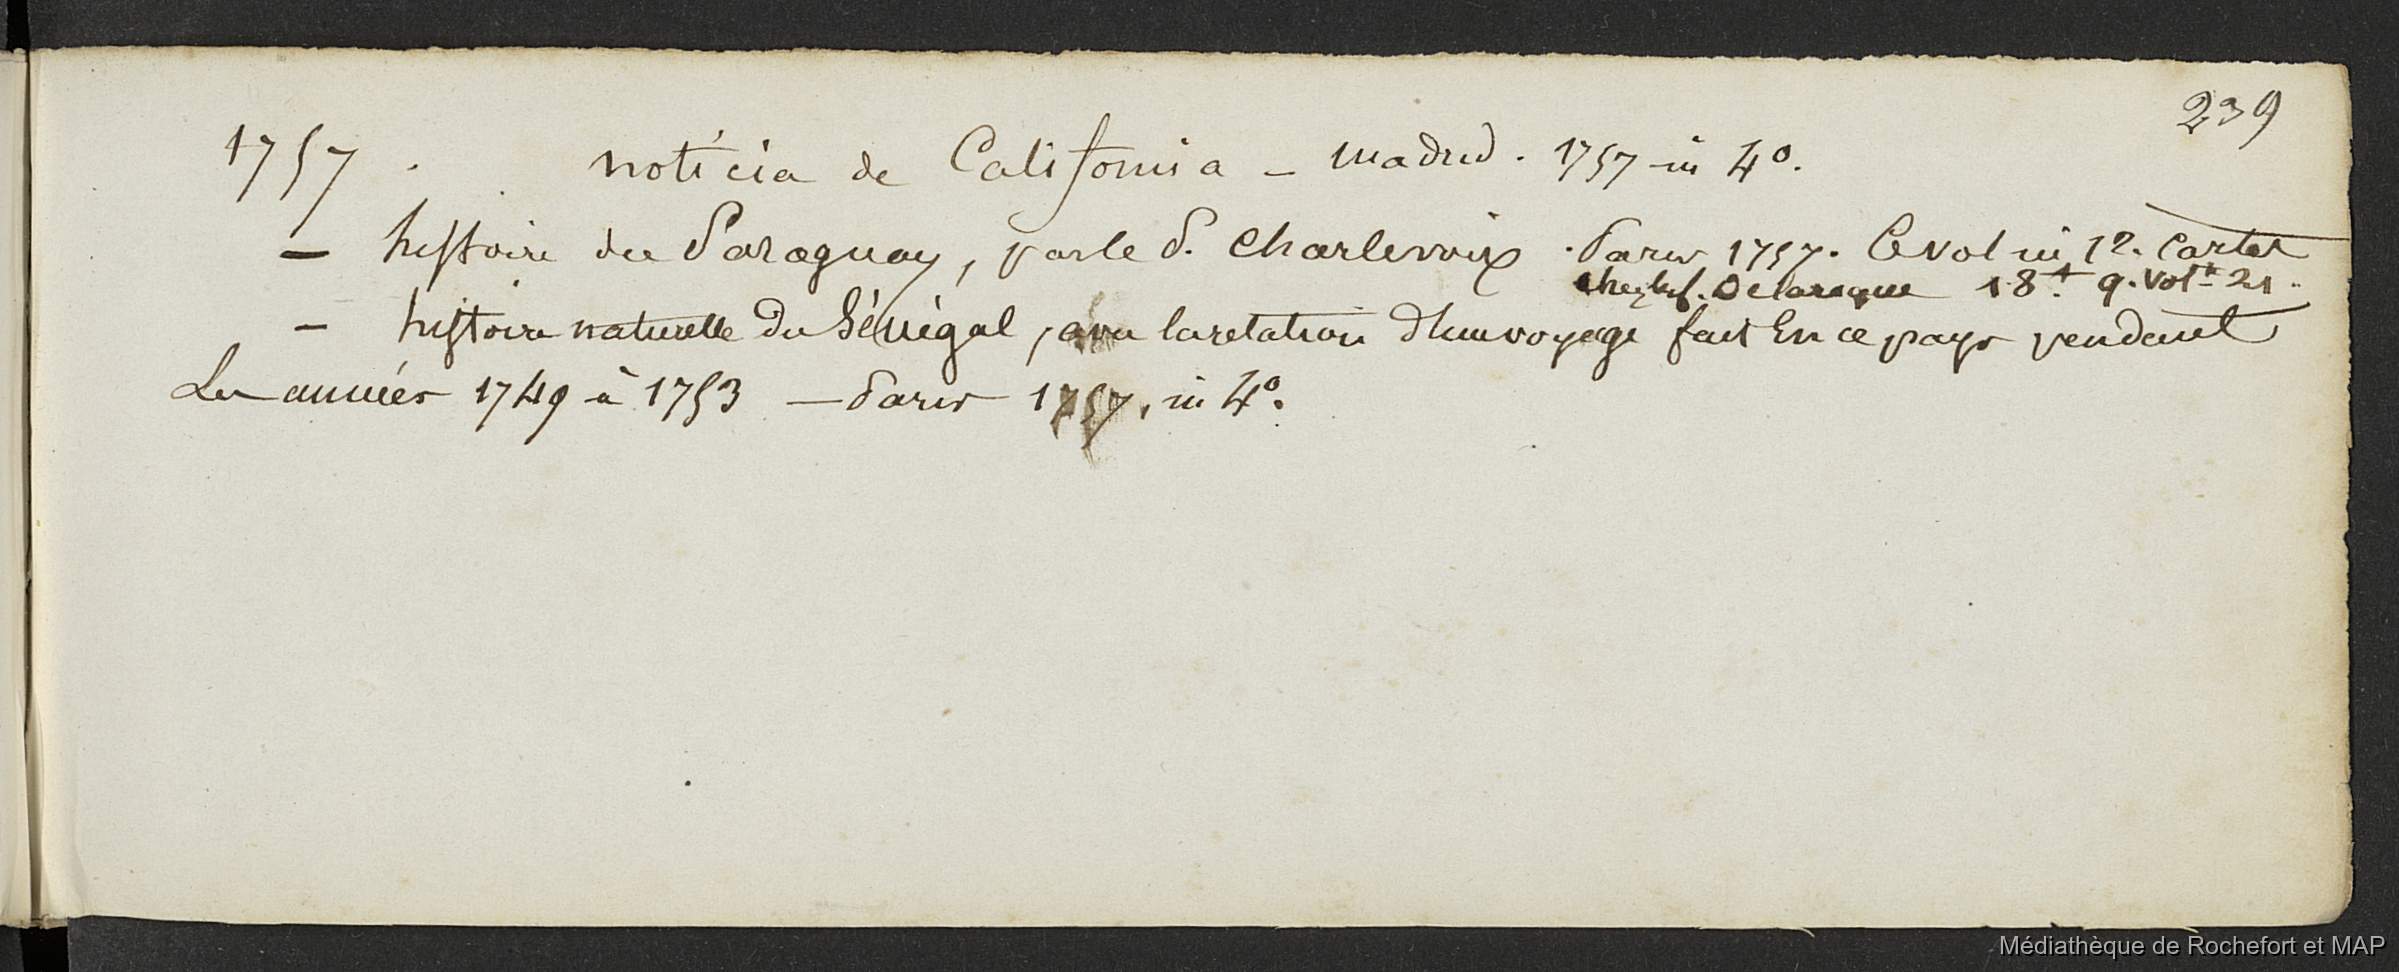 239
1757. noticia de California – Madrid. 1757 in 4°.
– histoire du Paraguay, par le P. Charlevoix. Paris 1757. 6 vol in 12. Cartes
18 9. vol 21.
– histoire naturelle du Sénégal, avec la relation d'un voyage fait En ce pays pendant
Les années 1749 à 1753 – Paris 1757, in 4°.
Médiathèque de Rochefort et MAP